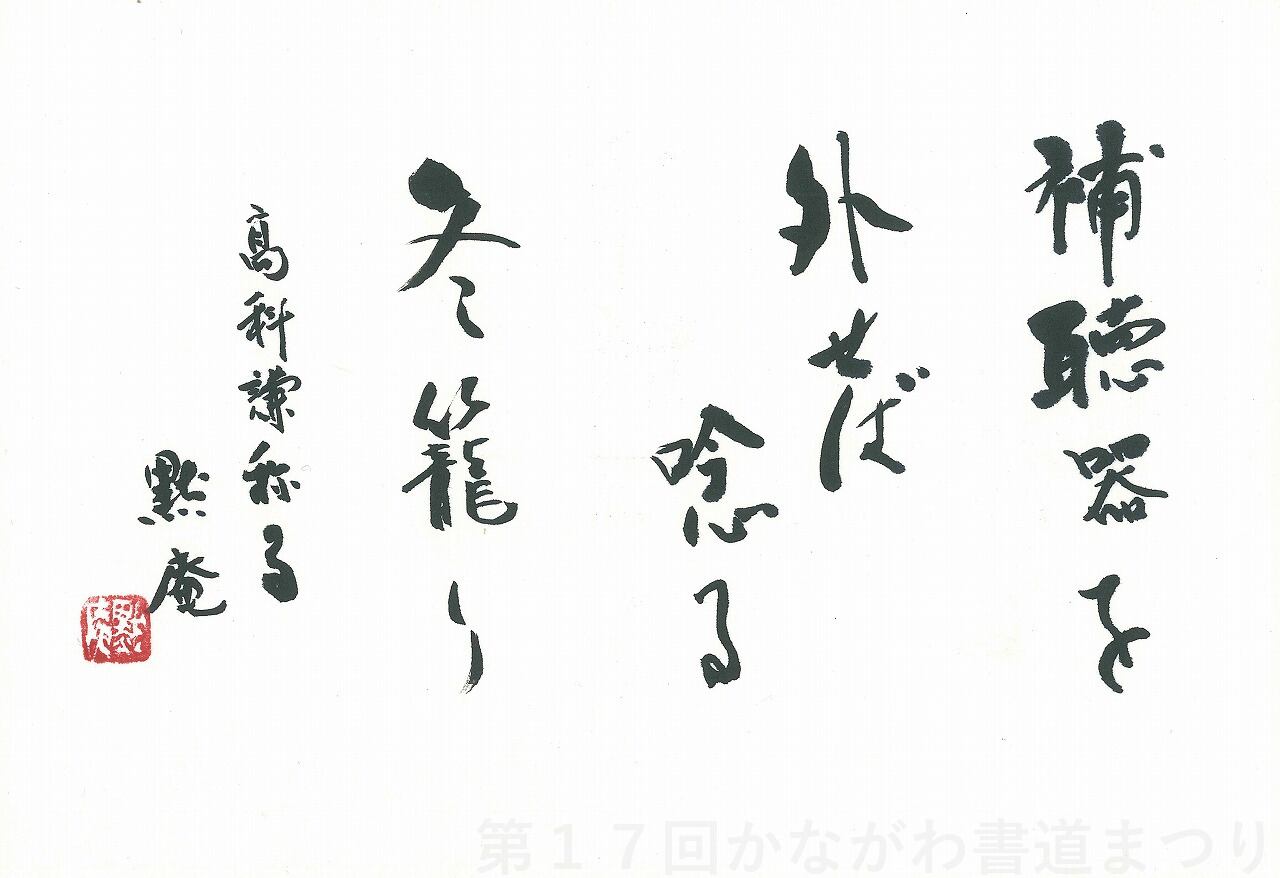 補聴器を
外せば
唸る
冬籠り
高科謙
黙庵
第１７回かながわ書道まつり